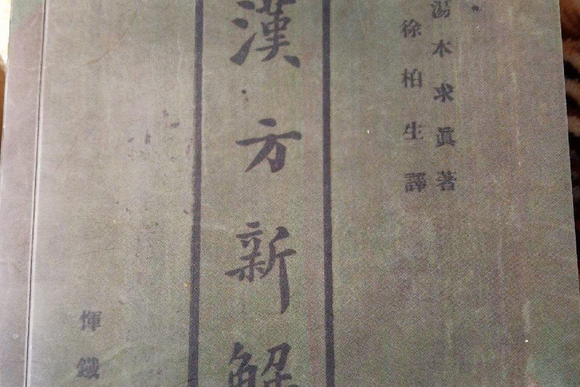 湯本求真著
徐柏生譯
漢方新解
惲鐵